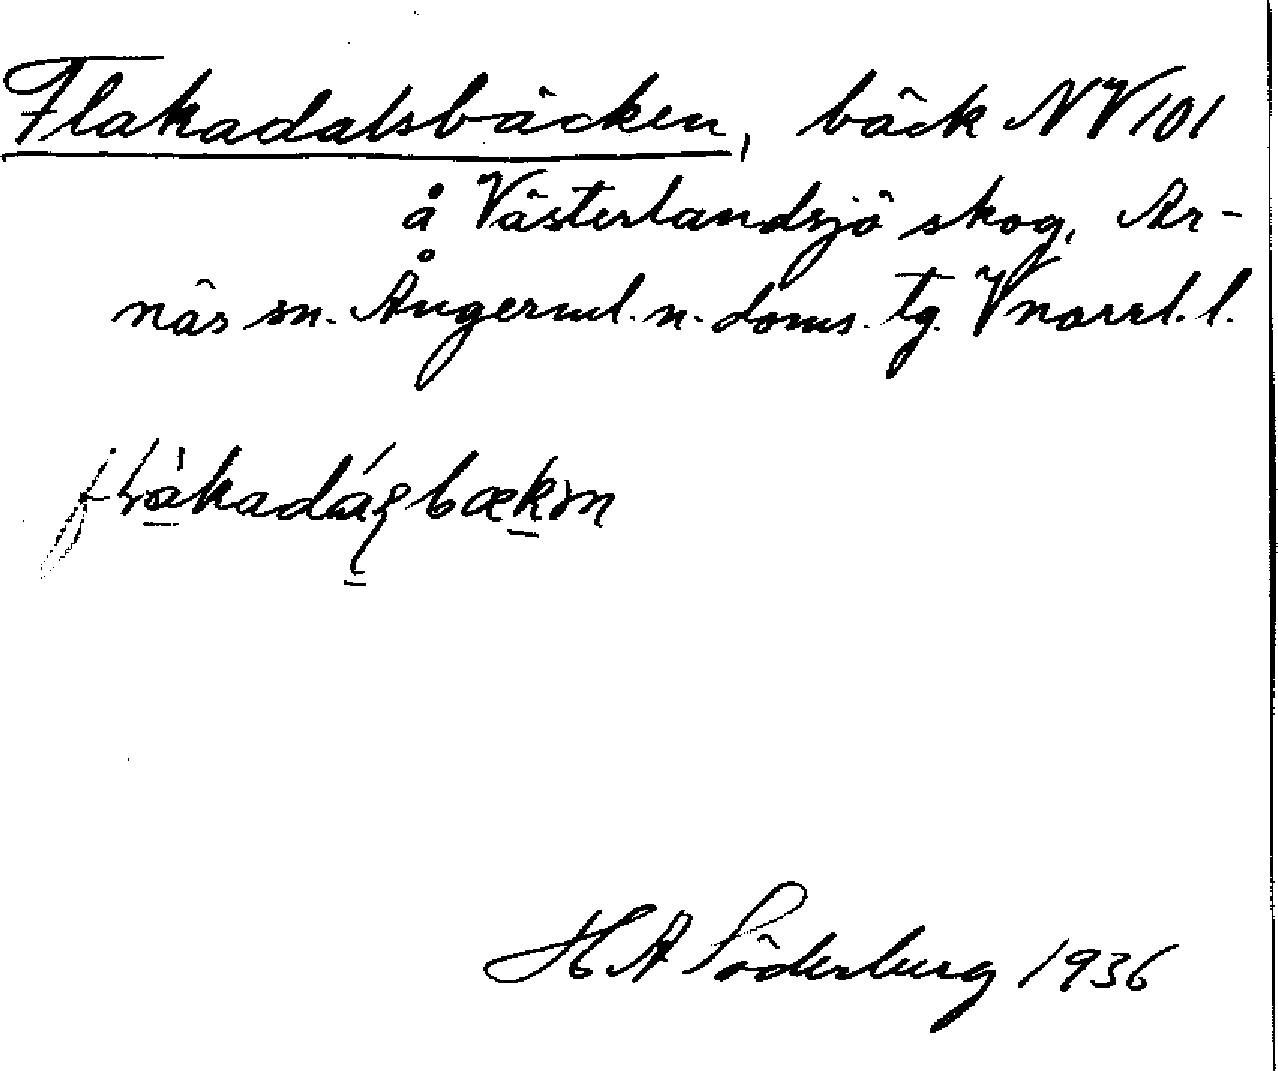 Flakadalsbäcken, bäck NV 101
å Västerlandsjö skog, Ar-
näs sn. Ångerml. n. doms. tg. Vnorrl. l.
H A Söderberg 1936